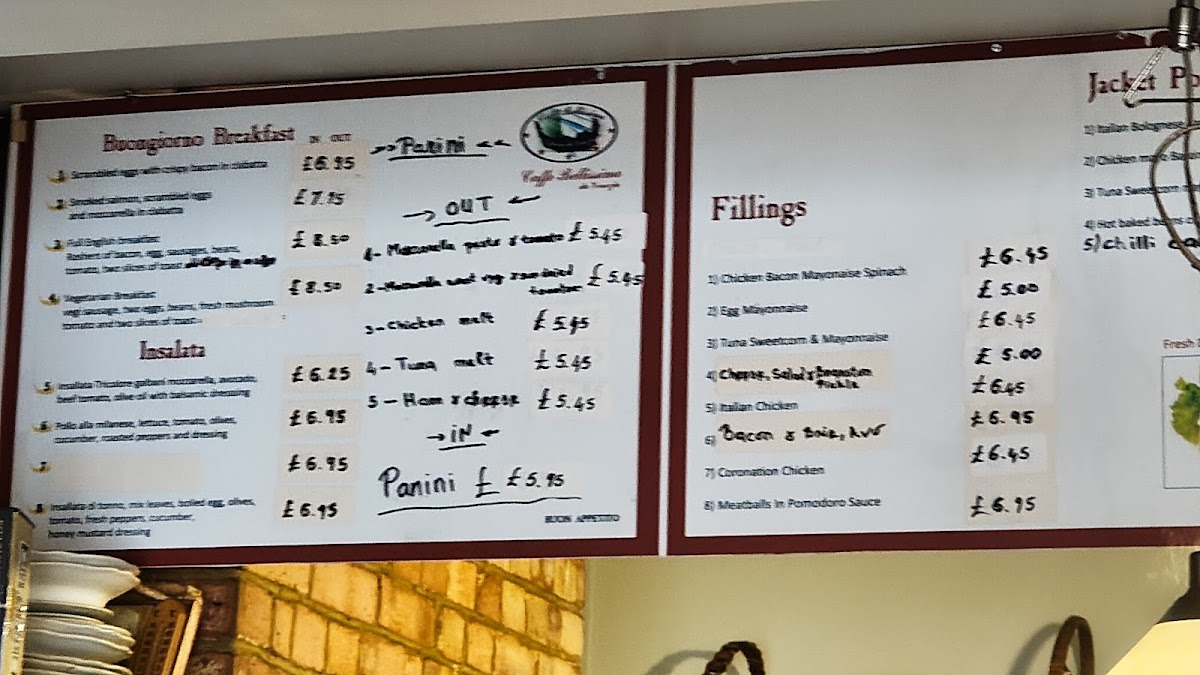 Buongiorno Breakfast
IN OUT
1. Scrambled eggs with crispy bacon in ciabatta £6.95
2. Smoked salmon, scrambled eggs £7.95
and mozzarella in ciabatta
3. Full English breakfast £8.50
Rashers of bacon, egg, sausages, beans,
tomato, two slices of toast
4. Vegetarian Breakfast £8.50
vegi sausage, two eggs, beans, fresh mushroom
tomato and two slices of toast
Insalata
5. Insalata Tricolore galbani mozzarella, avocado, £6.25
beef tomato, olive oil with balsamic dressing
6. Pollo alla milanese, lettuce, tomato, olives, £6.95
cucumber, roasted peppers and dressing
7. £6.95
8. Insalata di tonno, mix leaves, boiled egg, olives, £6.95
tomato, fresh peppers, cucumber,
honey mustard dressing
Panini
Caffe Bellissimo
OUT
1- Mozzarella pesto & tomato £5.45
2- Mozzarella £5.45
3- Chicken melt £5.45
4- Tuna melt £5.45
5- Ham & cheese £5.45
IN
Panini £ £5.95
BUON APPETITO
Fillings
1) Chicken Bacon Mayonaise Spinach £6.45
2) Egg Mayonnaise £5.00
3) Tuna Sweetcorn & Mayonnaise £6.45
4) Cheese, Salad & Branston £5.00
Pickle
5) Italian Chicken £6.45
6) Bacon & Brie, Avo £6.95
7) Coronation Chicken £6.45
8) Meatballs in Pomodoro Sauce £6.95
Jacket Po
1) Italian Bolognese
2) Chicken mayo Bacon
3) Tuna Sweetcorn
4) Hot baked beans
5) Chilli
Fresh